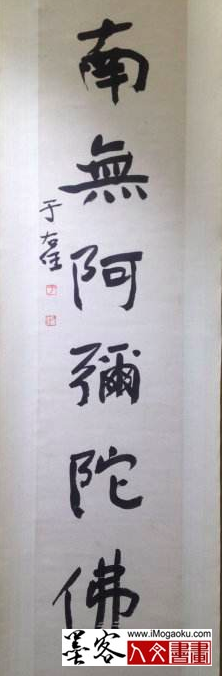 南無阿彌陀佛
于右任
墨客
www.iMogaoku.com
人文書畫